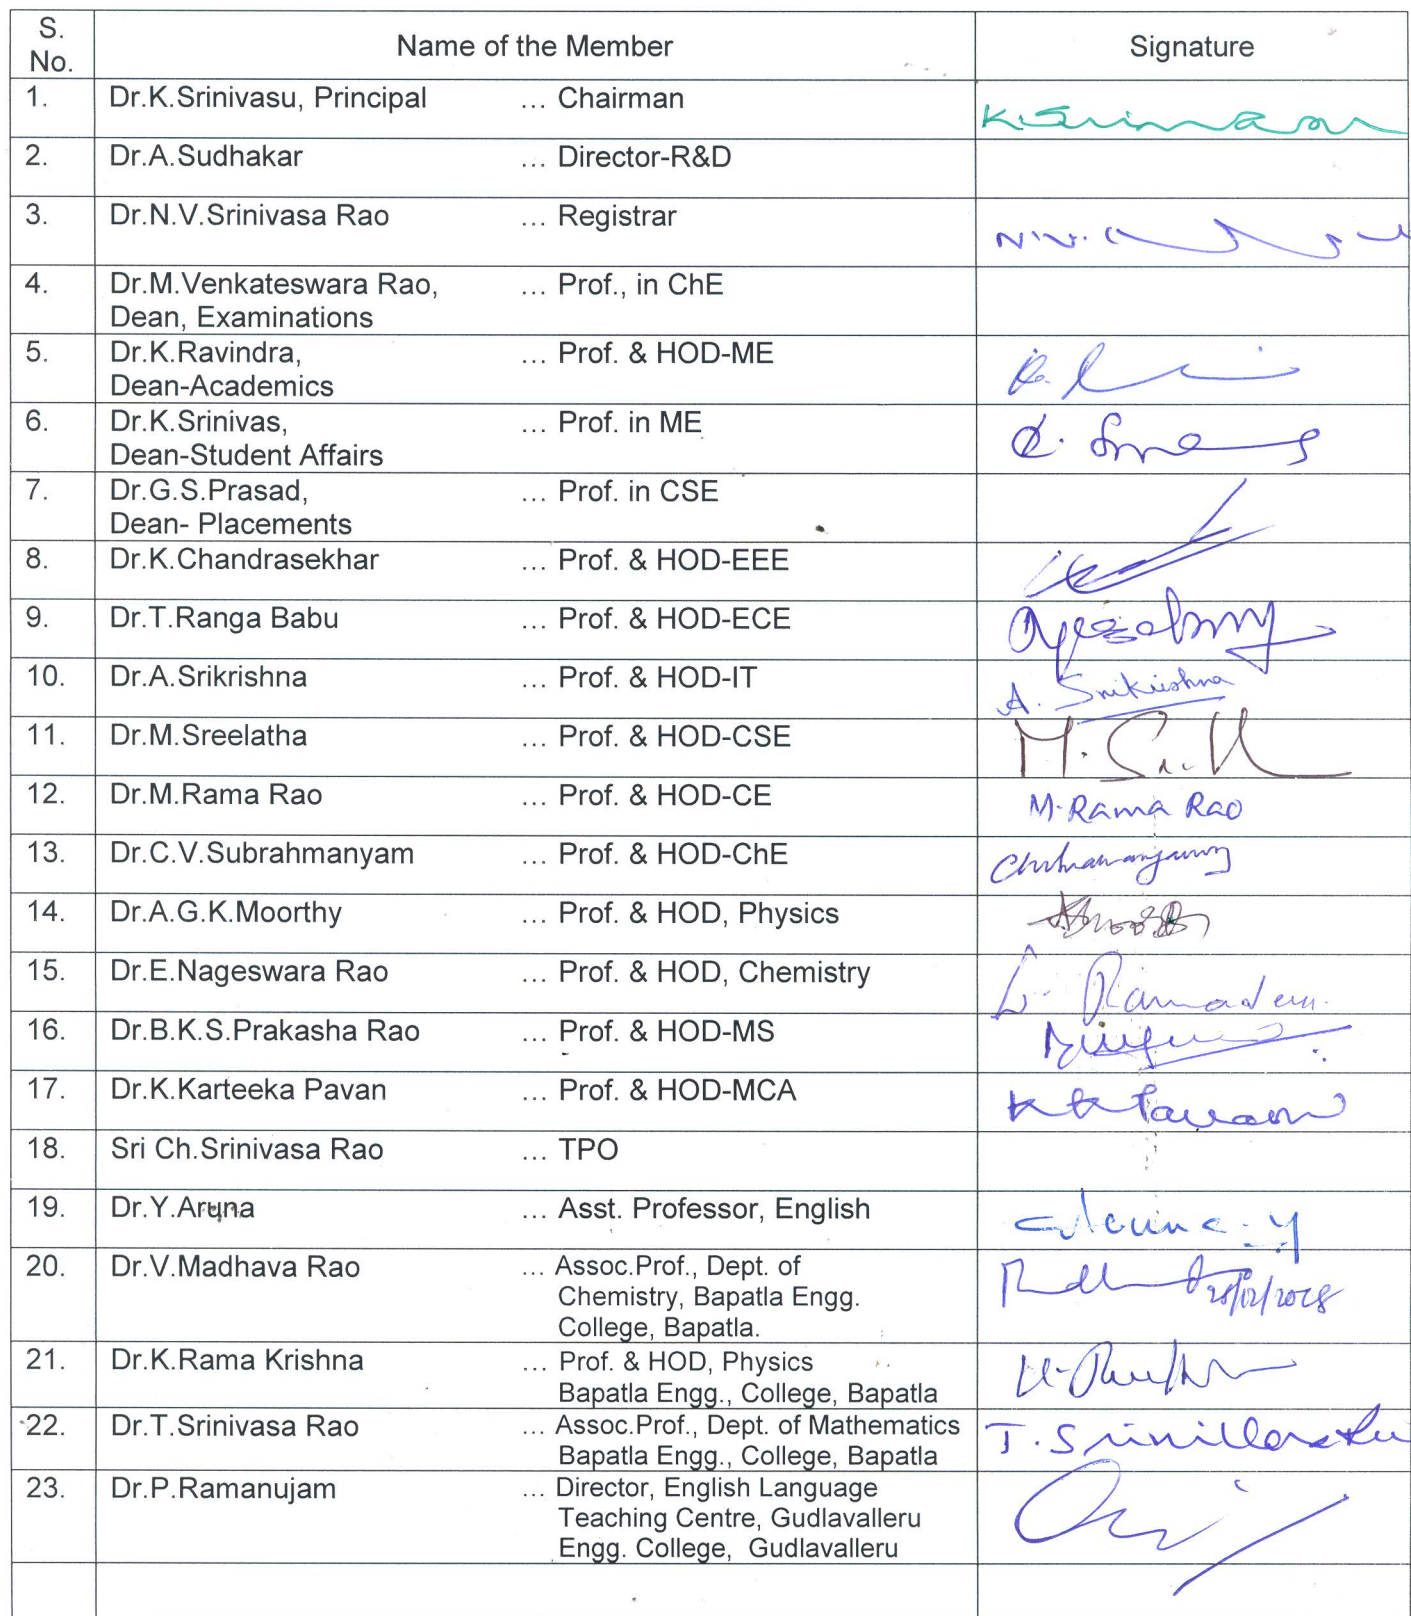 S. No. Name of the Member Signature
1. Dr.K.Srinivasu, Principal ... Chairman K.Srinivasu
2. Dr.A.Sudhakar ... Director-R&D
3. Dr.N.V.Srinivasa Rao ... Registrar N.V.
4. Dr.M.Venkateswara Rao, ... Prof., in ChE
Dean, Examinations
5. Dr.K.Ravindra, ... Prof. & HOD-ME
Dean-Academics
6. Dr.K.Srinivas, ... Prof. in ME
Dean-Student Affairs
7. Dr.G.S.Prasad, ... Prof. in CSE
Dean- Placements
8. Dr.K.Chandrasekhar ... Prof. & HOD-EEE
9. Dr.T.Ranga Babu ... Prof. & HOD-ECE
10. Dr.A.Srikrishna ... Prof. & HOD-IT A. Srikrishna
11. Dr.M.Sreelatha ... Prof. & HOD-CSE
12. Dr.M.Rama Rao ... Prof. & HOD-CE M.Rama Rao
13. Dr.C.V.Subrahmanyam ... Prof. & HOD-ChE
14. Dr.A.G.K.Moorthy ... Prof. & HOD, Physics
15. Dr.E.Nageswara Rao ... Prof. & HOD, Chemistry
16. Dr.B.K.S.Prakasha Rao ... Prof. & HOD-MS
17. Dr.K.Karteeka Pavan ... Prof. & HOD-MCA KKPavan
18. Sri Ch.Srinivasa Rao ... TPO
19. Dr.Y.Aruna ... Asst. Professor, English Aruna.Y
20. Dr.V.Madhava Rao ... Assoc.Prof., Dept. of
Chemistry, Bapatla Engg.
College, Bapatla.
21. Dr.K.Rama Krishna ... Prof. & HOD, Physics
Bapatla Engg., College, Bapatla
22. Dr.T.Srinivasa Rao ... Assoc.Prof., Dept. of Mathematics
Bapatla Engg., College, Bapatla
23. Dr.P.Ramanujam ... Director, English Language
Teaching Centre, Gudlavalleru
Engg. College, Gudlavalleru